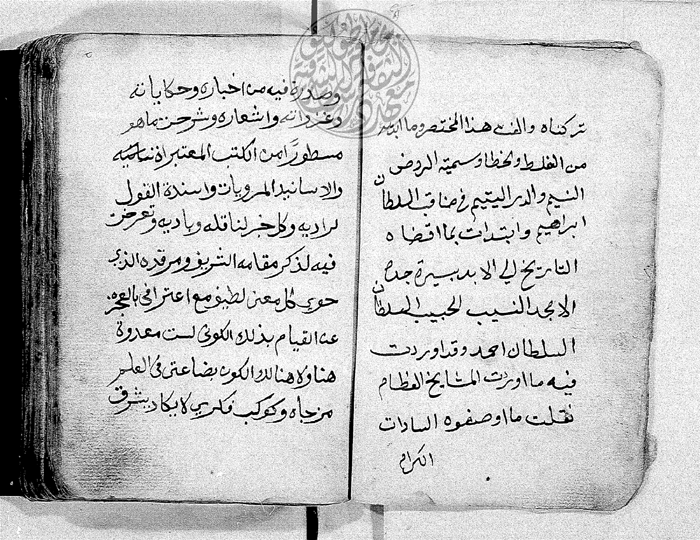 تركناه والف هذا المختصر وما
من الغلط والخطا وسميته الروض
النسيم والدر اليتيم في مناقب السلطان
ابراهيم وابتدات بما اقتضاه
التاريخ الي الابد بسيرة جده
الامجد النسيب الحبيب السلطان
السلطان احمد وقد اوردت
فيه ما اوردت المشايخ العظام
نقلت ما اوصفوه السادات
الكرام
وصدرة فيه من اخباره وحكاياته
واشعاره وشرحت ما هو
مسطورا من الكتب المعتبرة
والاسانيد المرويات واسندة القول
لراديه وكل خبر لناقله وباديه وتعرضت
فيه لذكر مقامه الشريف ومرقده الذي
حوي كل معنى لطيف مع اعترافي بالعجز
عن القيام بذلك لكوني لست معدودة
هنا ولا هنالك لكون بضاعتي في العلم
مزجاه وكوكب فكري لا يكاد يشرق